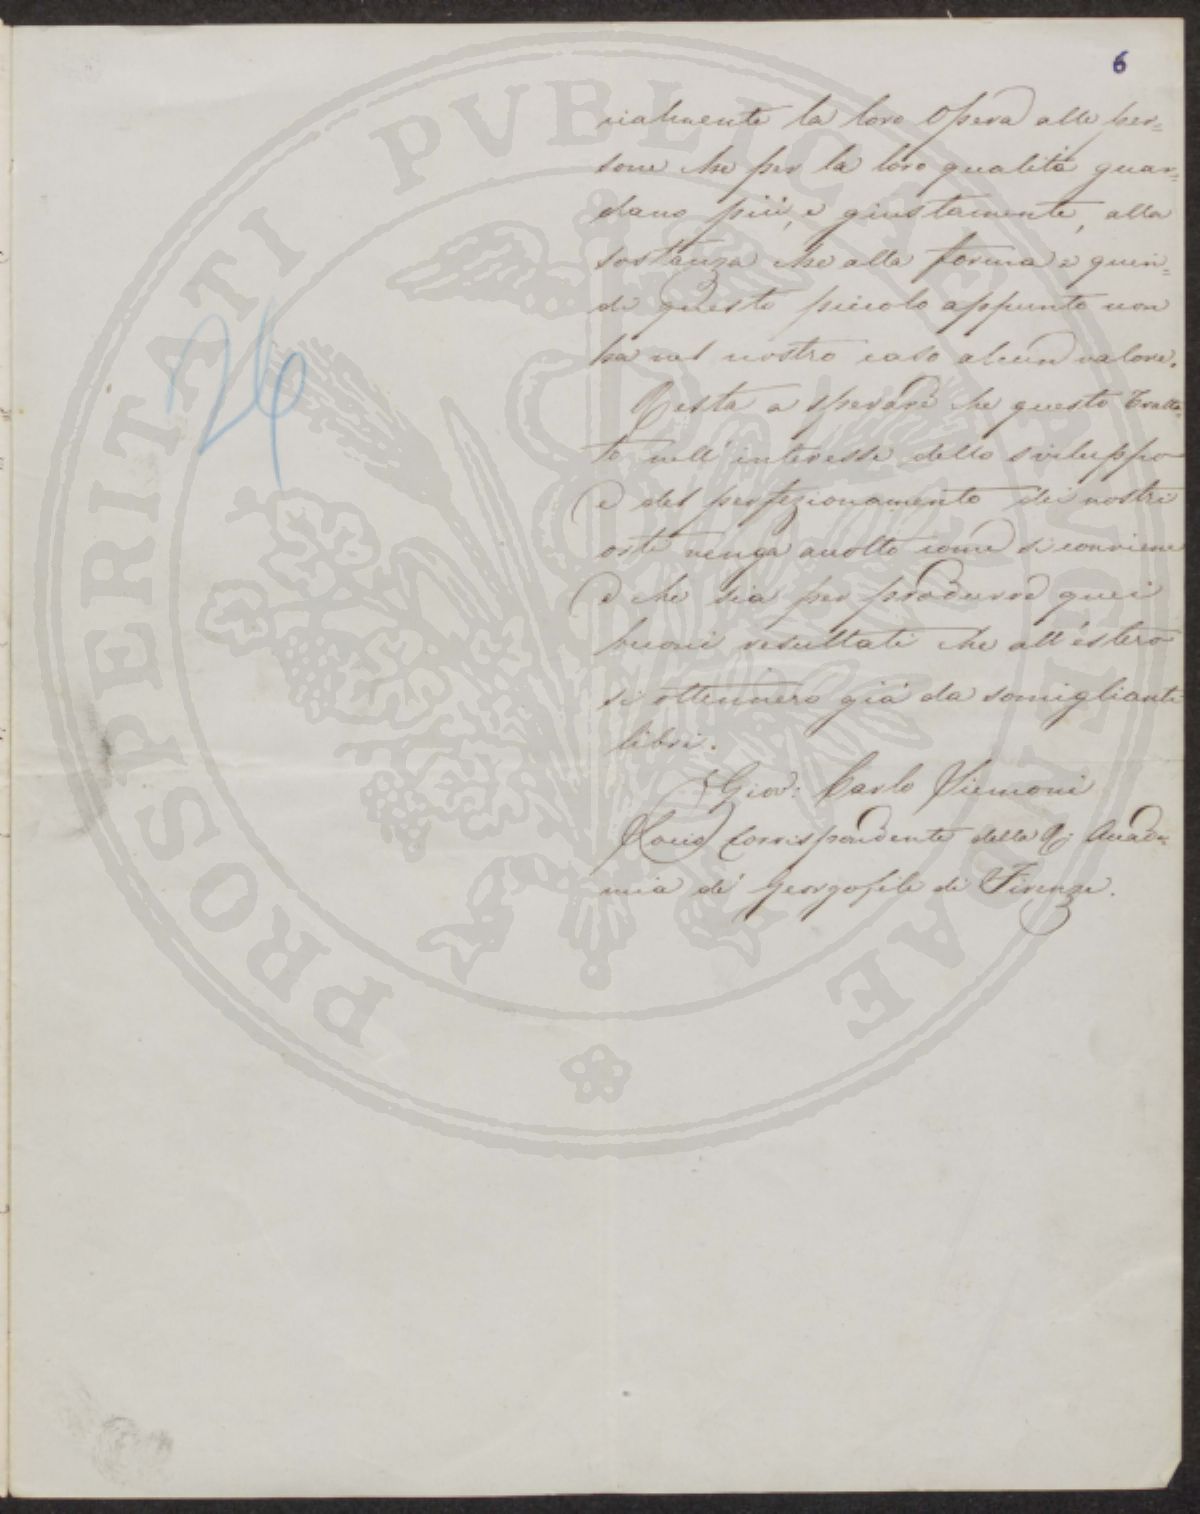 6
cialmente la loro Opera alle per=
sone che per la loro qualità guar=
dano più, e giustamente, alla
sostanza che alla forma e quin=
di questo piccolo appunto non
ha nel nostro caso alcun valore.
Resta a sperare che questo Tratta=
to nell'interesse dello sviluppo
e del perfezionamento dei nostri
orti venga accolto come si conviene
e che sia per produrre quei
buoni resultati che all'estero
si ottennero già da somiglianti
libri.
Giov: Carlo Siemoni
Socio Corrispondente della R. Accade=
mia de' Georgofili di Firenze.
26
PROSPERITATI PVBLICAE AVGENDAE